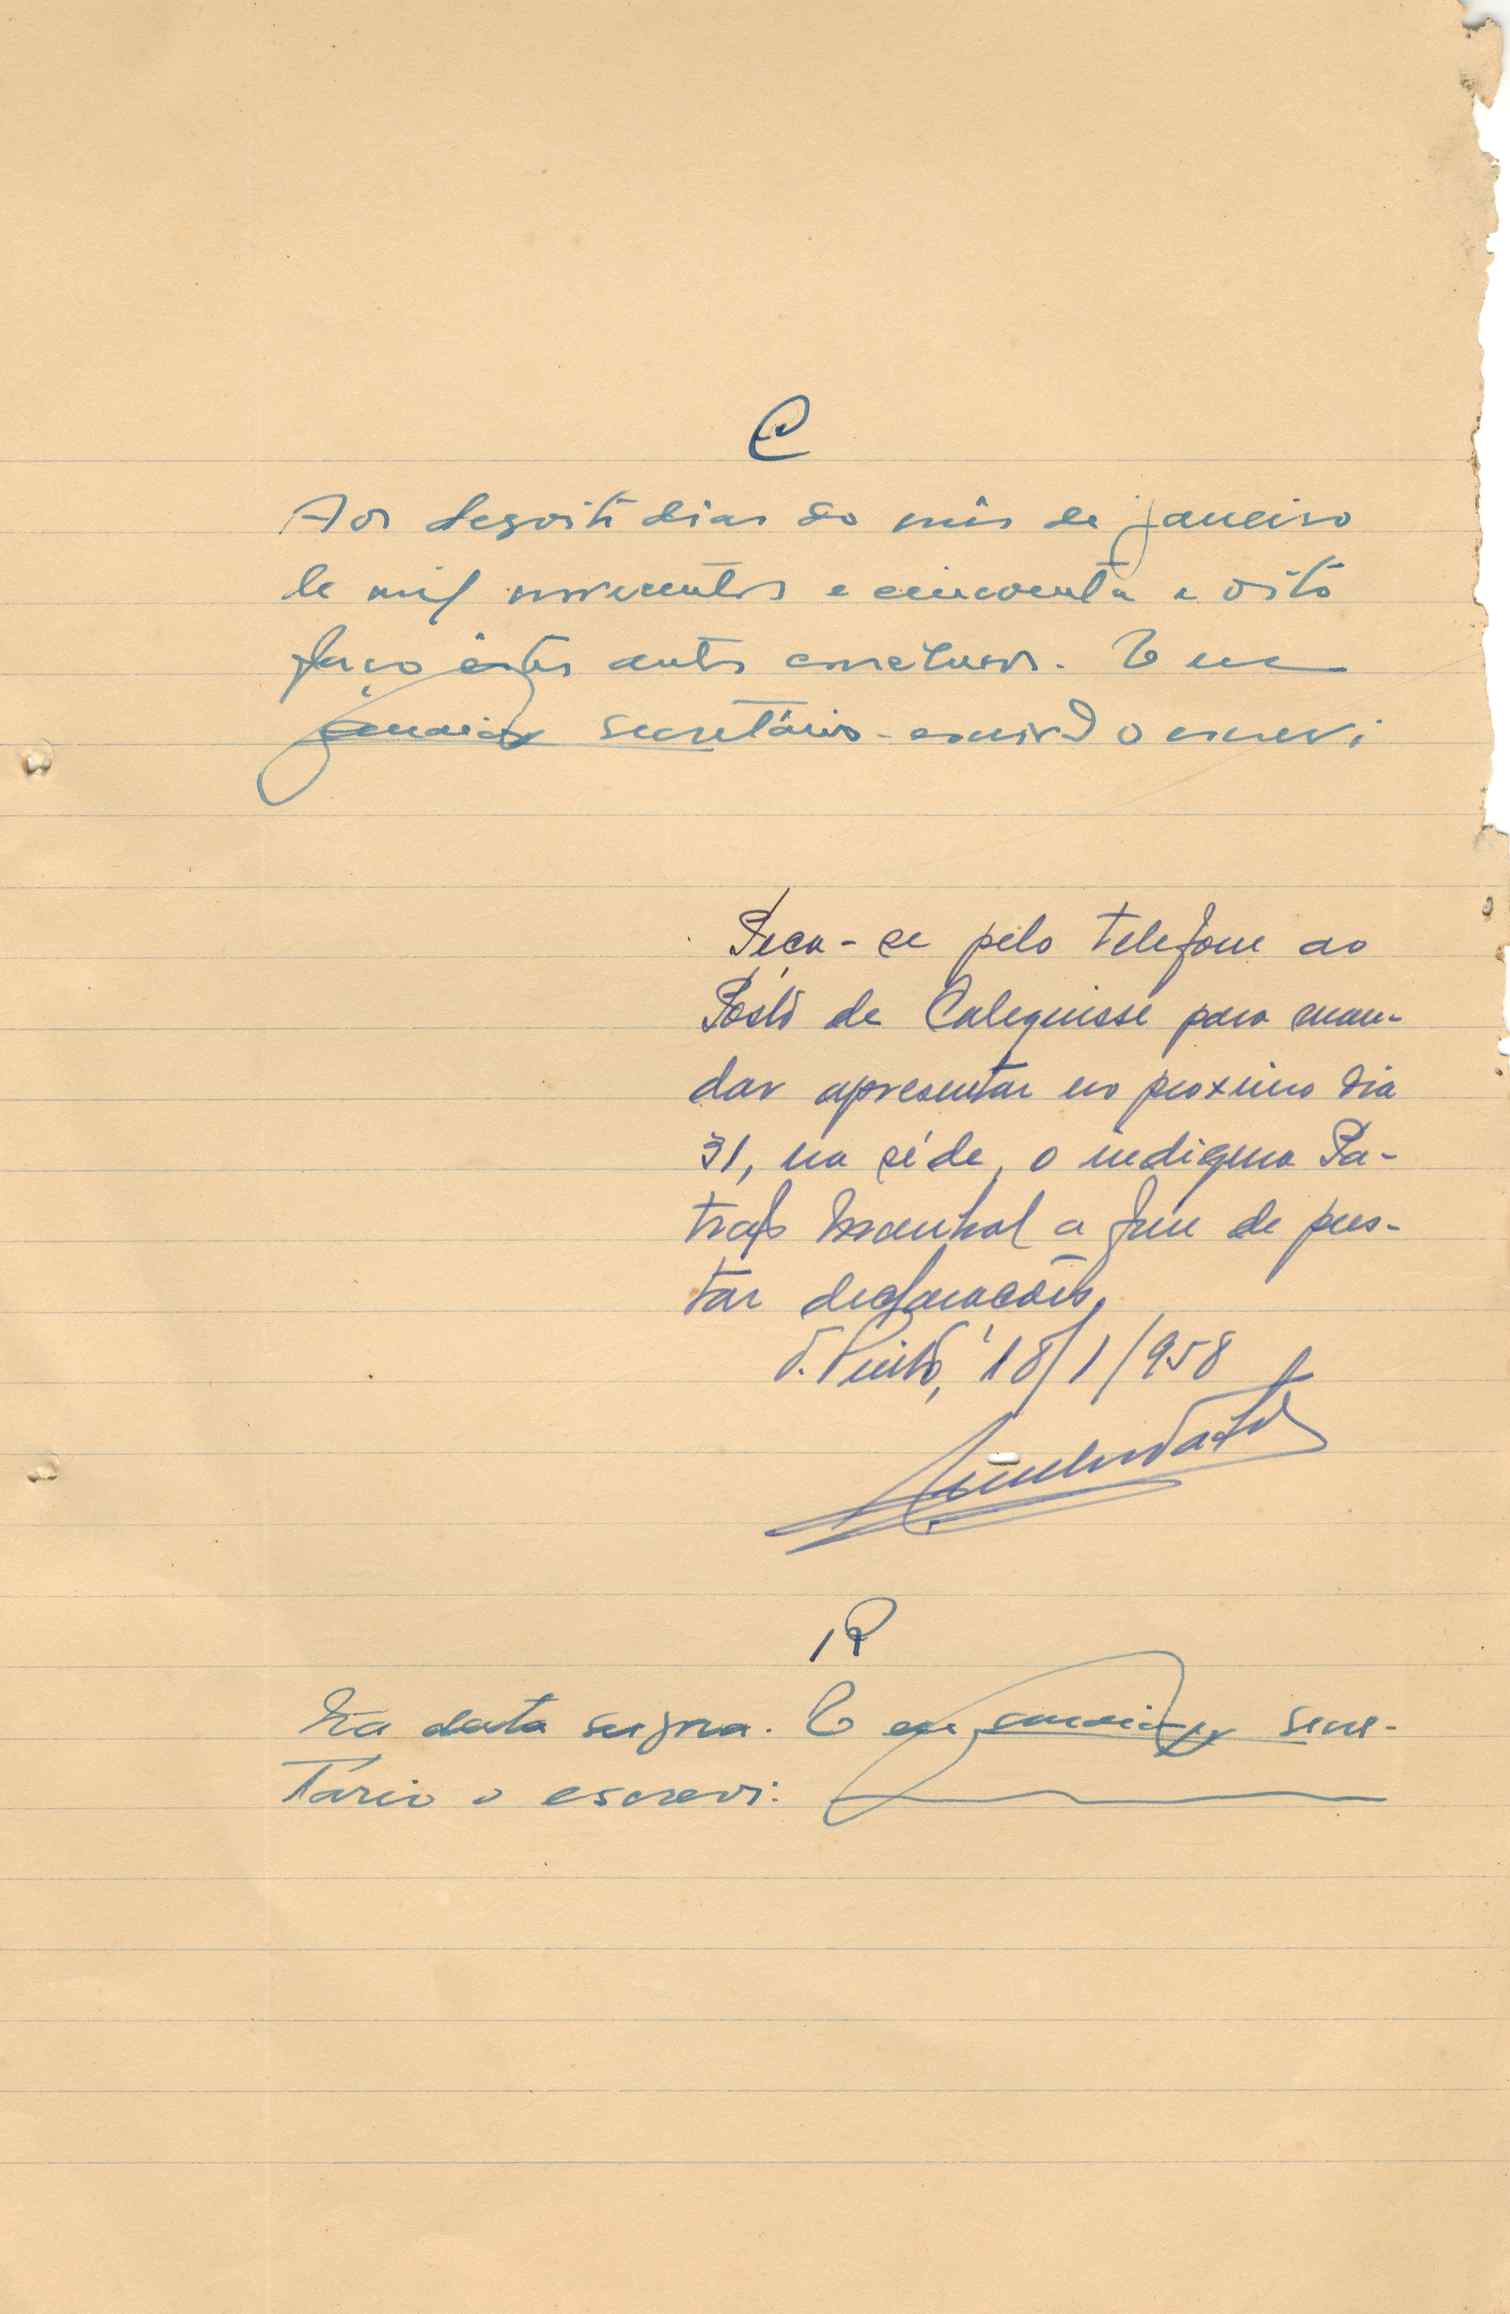 C
Aos dezoito dias do mês de janeiro
de mil novecentos e cincoenta e oito
faço êstes autos conclusos. E eu
secretário o escrevi
Peça-se pelo telefone ao
Pôsto de Calequisse para man-
dar apresentar no proximo dia
31, na séde, o indigena Pa-
Manhal a fim de pres-
tar declarações,
T. Pinto, 18/1/958
R
Na data supra. E eu secre-
tário o escrevi: